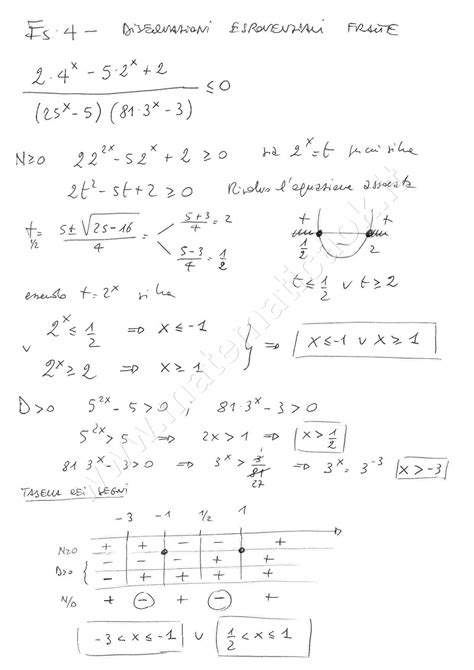 Es. 4 - DISEQUAZIONI ESPONENZIALI FRATTE
2·4^x - 5·2^x + 2
(25^x - 5) (81·3^x - 3) ≤ 0
N≥0 2 2^{2x} - 5 2^x + 2 ≥ 0 sia 2^x = t quindi si ha
2t² - 5t + 2 ≥ 0 Risolvo l'equazione associata
t_{1/2} = 5 ± √(25 - 16) / 4 = 5+3/4 = 2
5-3/4 = 1/2
+ - +
1/2 2
t ≤ 1/2 ∨ t ≥ 2
essendo t = 2^x si ha
2^x ≤ 1/2 ⇒ x ≤ -1
∨ } ⇒ x ≤ -1 ∨ x ≥ 1
2^x ≥ 2 ⇒ x ≥ 1
D>0 5^{2x} - 5 > 0 ; 81·3^x - 3 > 0
5^{2x} > 5 ⇒ 2x > 1 ⇒ x > 1/2
81 3^x - 3 > 0 ⇒ 3^x > 3/81 1 27 ⇒ 3^x = 3^{-3} x > -3
TABELLA DEI SEGNI
-3 -1 1/2 1
N≥0 + + - - +
D>0 { - - - + +
- + + + +
N/D + - + - +
-3 < x ≤ -1 ∨ 1/2 < x ≤ 1
www.matematicaok.it